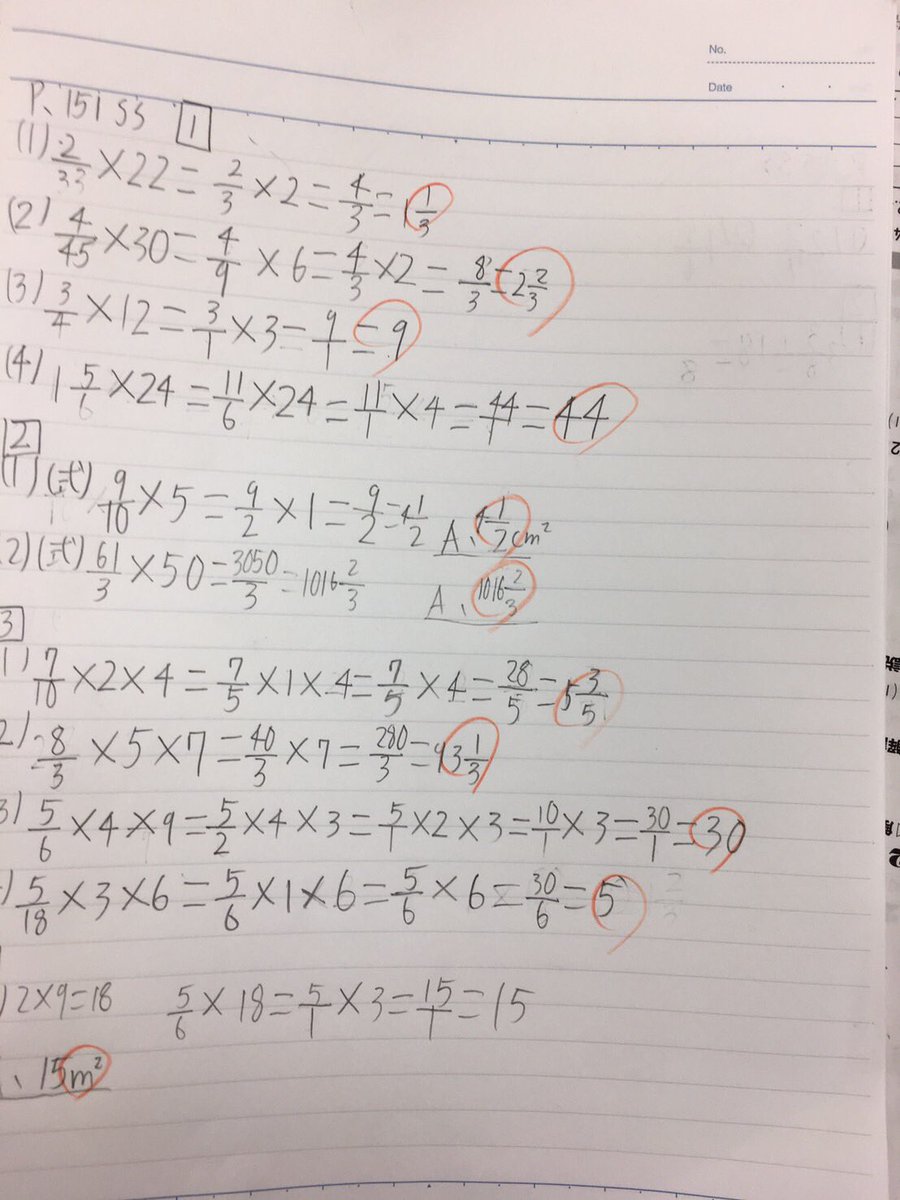 No.
Date
P. 151 S3 1
(1) 2/33 ×22= 2/3 ×2= 4/3 = 1 1/3
(2) 4/45 ×30= 4/9 ×6= 4/3 ×2= 8/3 = 2 2/3
(3) 3/4 ×12= 3/1 ×3= 9/1 =9
(4) 1 5/6 ×24= 11/6 ×24= 11/1 ×4= 44/1 =44
2
(1) (式) 9/10 ×5= 9/2 ×1= 9/2 = 4 1/2 A、4 1/2 cm²
2) (式) 61/3 ×50= 3050/3 = 1016 2/3 A、1016 2/3
3
1) 7/10 ×2×4= 7/5 ×1×4= 7/5 ×4= 28/5 = 5 3/5
2) 8/3 ×5×7= 40/3 ×7= 280/3 = 93 1/3
3) 5/6 ×4×9= 5/2 ×4×3= 5/1 ×2×3= 10/1 ×3= 30/1 =30
) 5/18 ×3×6= 5/6 ×1×6= 5/6 ×6= 30/6 =5
) 2×9=18 5/6 ×18= 5/1 ×3= 15/1 =15
、15m²